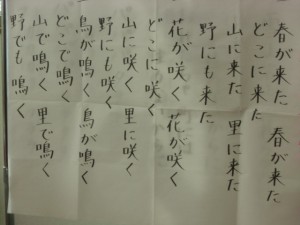 春が来た　春が来た
どこに来た
山に来た　里に来た
野にも来た
花が咲く　花が咲く
どこに咲く
山に咲く　里に咲く
野にも咲く
鳥が鳴く　鳥が鳴く
どこで鳴く
山で鳴く　里で鳴く
野でも鳴く